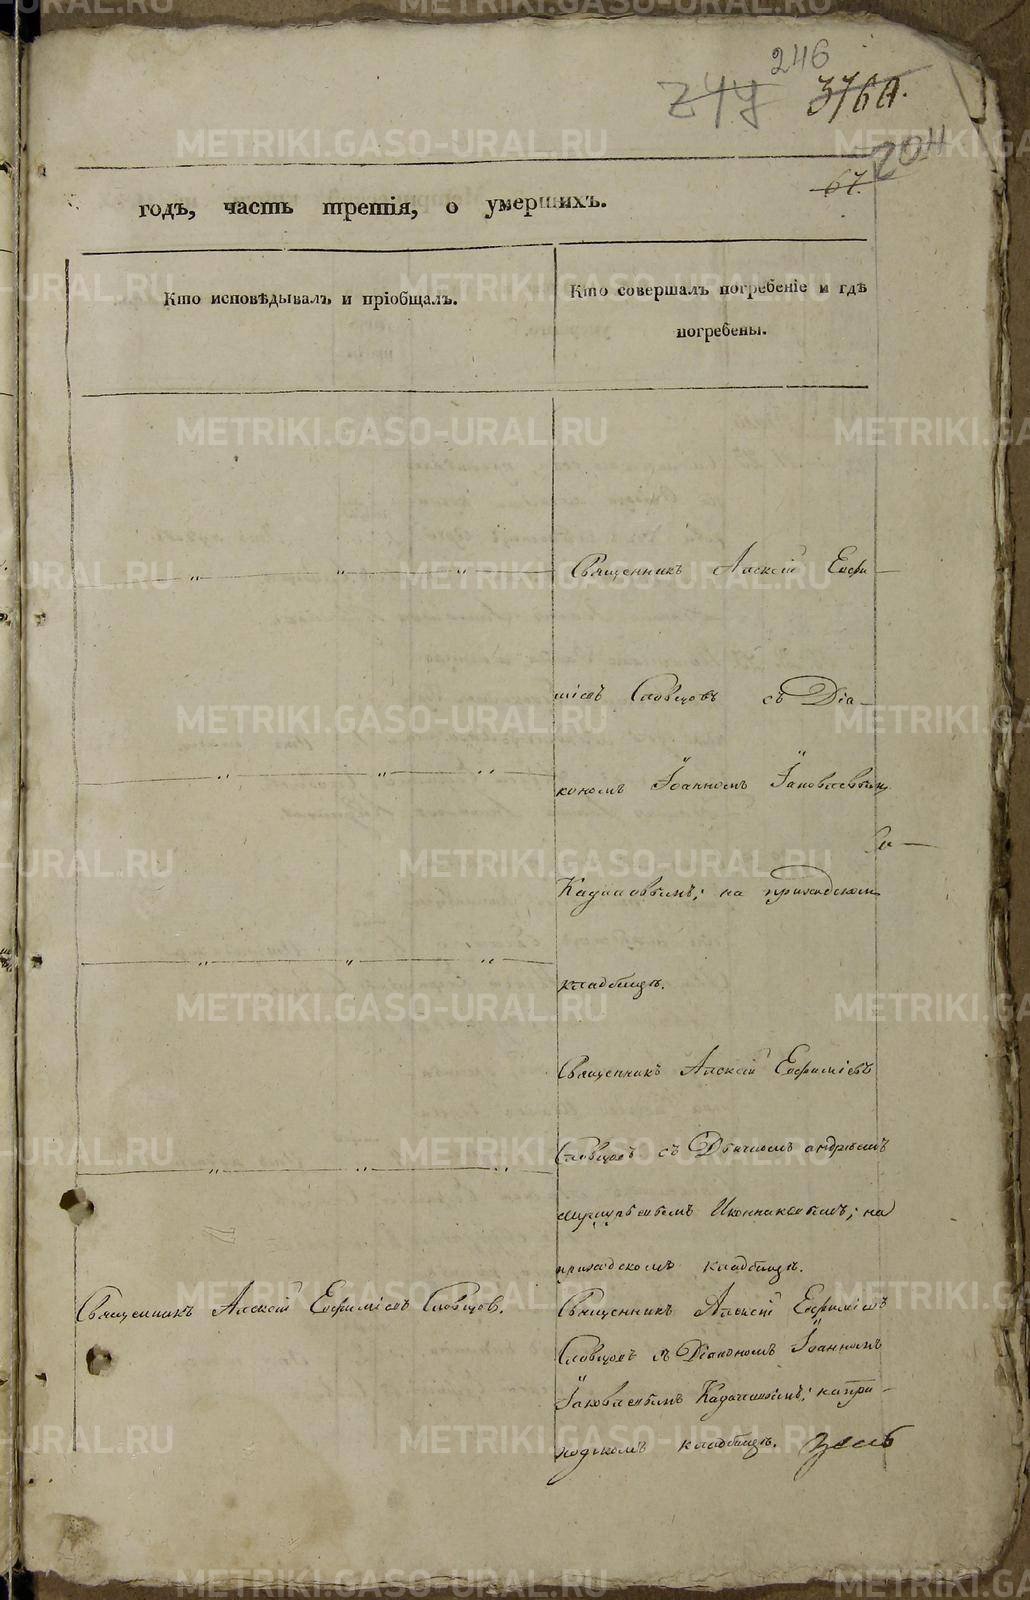 246
249 376А.
204
67
годъ, часть третія, о умершихъ.
Кто исповѣдывалъ и пріобщалъ.
Кто совершалъ погребеніе и гдѣ
погребены.
Священникъ Алексій Евфи—
міевъ Словцовъ съ Діа—
кономъ Іоанномъ Іаковлевым
Кадашовымъ; на приходском
кладбищѣ.
Священникъ Алексій Евфиміевъ
Словцовъ съ Дьячкомъ андрѣемъ
Иконниковымъ; на
приходскомъ кладбищѣ.
Священникъ Алексій Евфиміевъ Словцов.
Священникъ Алексій Евфиміевъ
Словцовъ съ Діакономъ Іоанномъ
Іаковлевымъ на при-
ходскомъ кладбищѣ.
METRIKI.GASO-URAL.RU